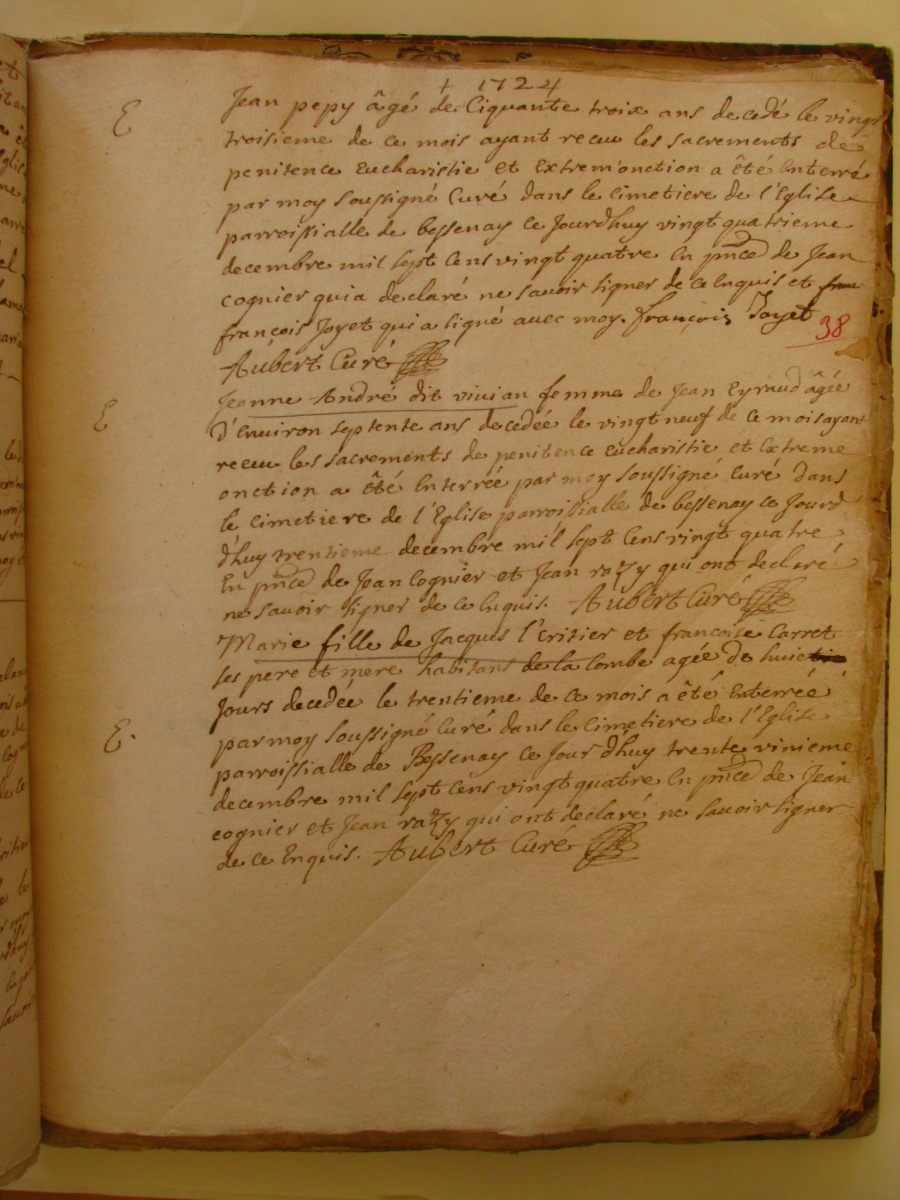 + 1724
E
Jean pepy âgé de Ciquante troix ans decedé le vingt
troisieme de ce mois ayant receu les sacrements de
penitence Eucharistie et Extrem'onction a êté Enterré
par moy soussigné Curé dans le Cimetiere de l'Eglise
parroissialle de bessenay ce Jourdhuy vingt quatrieme
decembre mil sept cens vingt quatre En pnce de Jean
cognier qui a declaré ne savoir signer de ce Enquis et
françois Joyet qui a signé avec moy. françois Joyet
38
Aubert Curé
E
Jeanne André dit vivian femme de Jean Eyraud âgée
d'Environ septente ans decedée le vingt neuf de ce mois ayant
receu les sacrements de penitence eucharistie et Extreme
onction a êté Enterrée par moy soussigné Curé dans
le Cimetiere de l'Eglise parroissialle de bessenay ce Jourd
d'huy trentieme decembre mil sept cens vingt quatre
En pnce de Jean Cognier et Jean razy qui ont declaré
ne savoir signer de ce Enquis. Aubert Curé
Marie fille de Jacques l'Eritier et francoise Carret
ses pere et mere habitans de la Combe agée de huic
Jours decedée le trentieme de ce mois a êté Enterrée
E.
par moy soussigné Curé dans le Cimetiere de l'Eglise
parroissialle de Bessenay ce Jour d'huy trente vinieme
decembre mil sept cens vingt quatre En pnce de Jean
cognier et Jean razy qui ont declaré ne savoir signer
de ce Enquis. Aubert Curé